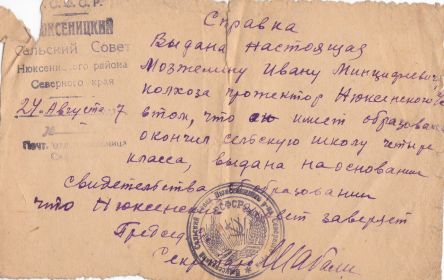 Р.С.Ф.С.Р.
НЮКСЕНИЦКИЙ
Сельский Совет
Нюксеницкого района
Северного края
24 Августа 7
№
Справка
Выдана настоящая
Мозжелину Ивану
колхоза прожектор Нюксенского
в том, что он имеет образован
окончил сельскую школу четыре
класса, выдана на основании
Свидетельства об образовании
что Нюксенский совет заверяет
Председ
Секретарь